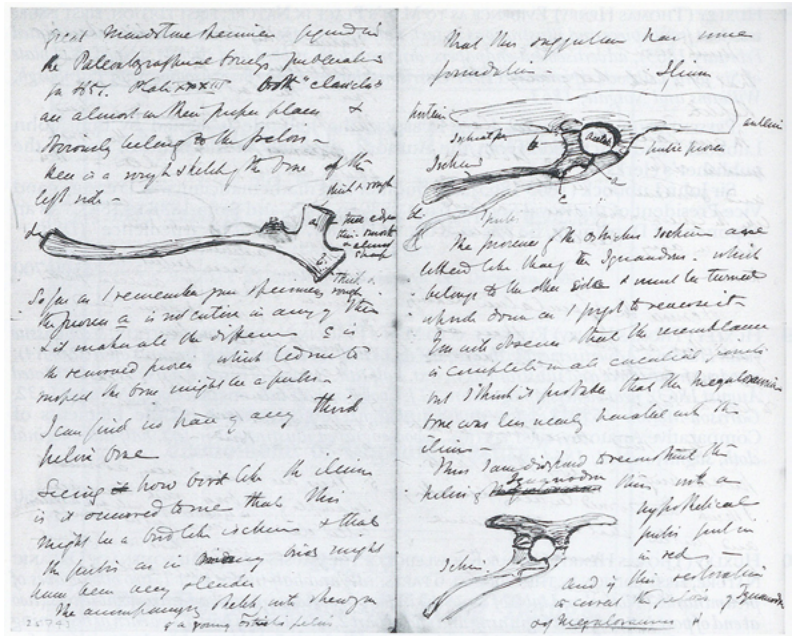 great Maidstone specimen figured in
the Palaeontographical Society's publication
for 1851. Plate XXXIII both "clavicles"
are almost in their proper places &
obviously belong to the pelvis.
Here is a rough sketch of the bone of the
left side —
thick & rough
d
a
thin
almost
sharp
c
thick &
rough
So far as I remember your specimens
the process a is not entire in any of them
& it makes all the difference. c is
the removed process which led me to
suspect the bone might be a pubis —
I can find no trace of any third
pelvic bone
Seeing how bird like the ilium
is it occurred to me that this
might be a bird like ischium & that
the pubis as in many birds might
have been very slender
The accompanying sketch, will shew you
of a young ostrich's pelvis
that this suggestion has some
foundation Ilium
posterior
anterior
Ischium
b
acetab
pubic process
a
c
d
pubis
The processes of the ostriches Ischium are
lettered like those of the Iguanodon. which
belongs to the other side & must be turned
upside down as I forgot to reverse it
You will observe that the resemblance
is complete in all essential points
but I think it probable that the Megalosaurian
bone was less nearly parallel with the
ilium —
Thus I am disposed to reconstruct the
pelvis of the Iguanodon thus with a
hypothetical
pubis put in
in red —
Ischium
and if this restoration
is correct the pelvis of Iguanodon
& of Megalosaurus